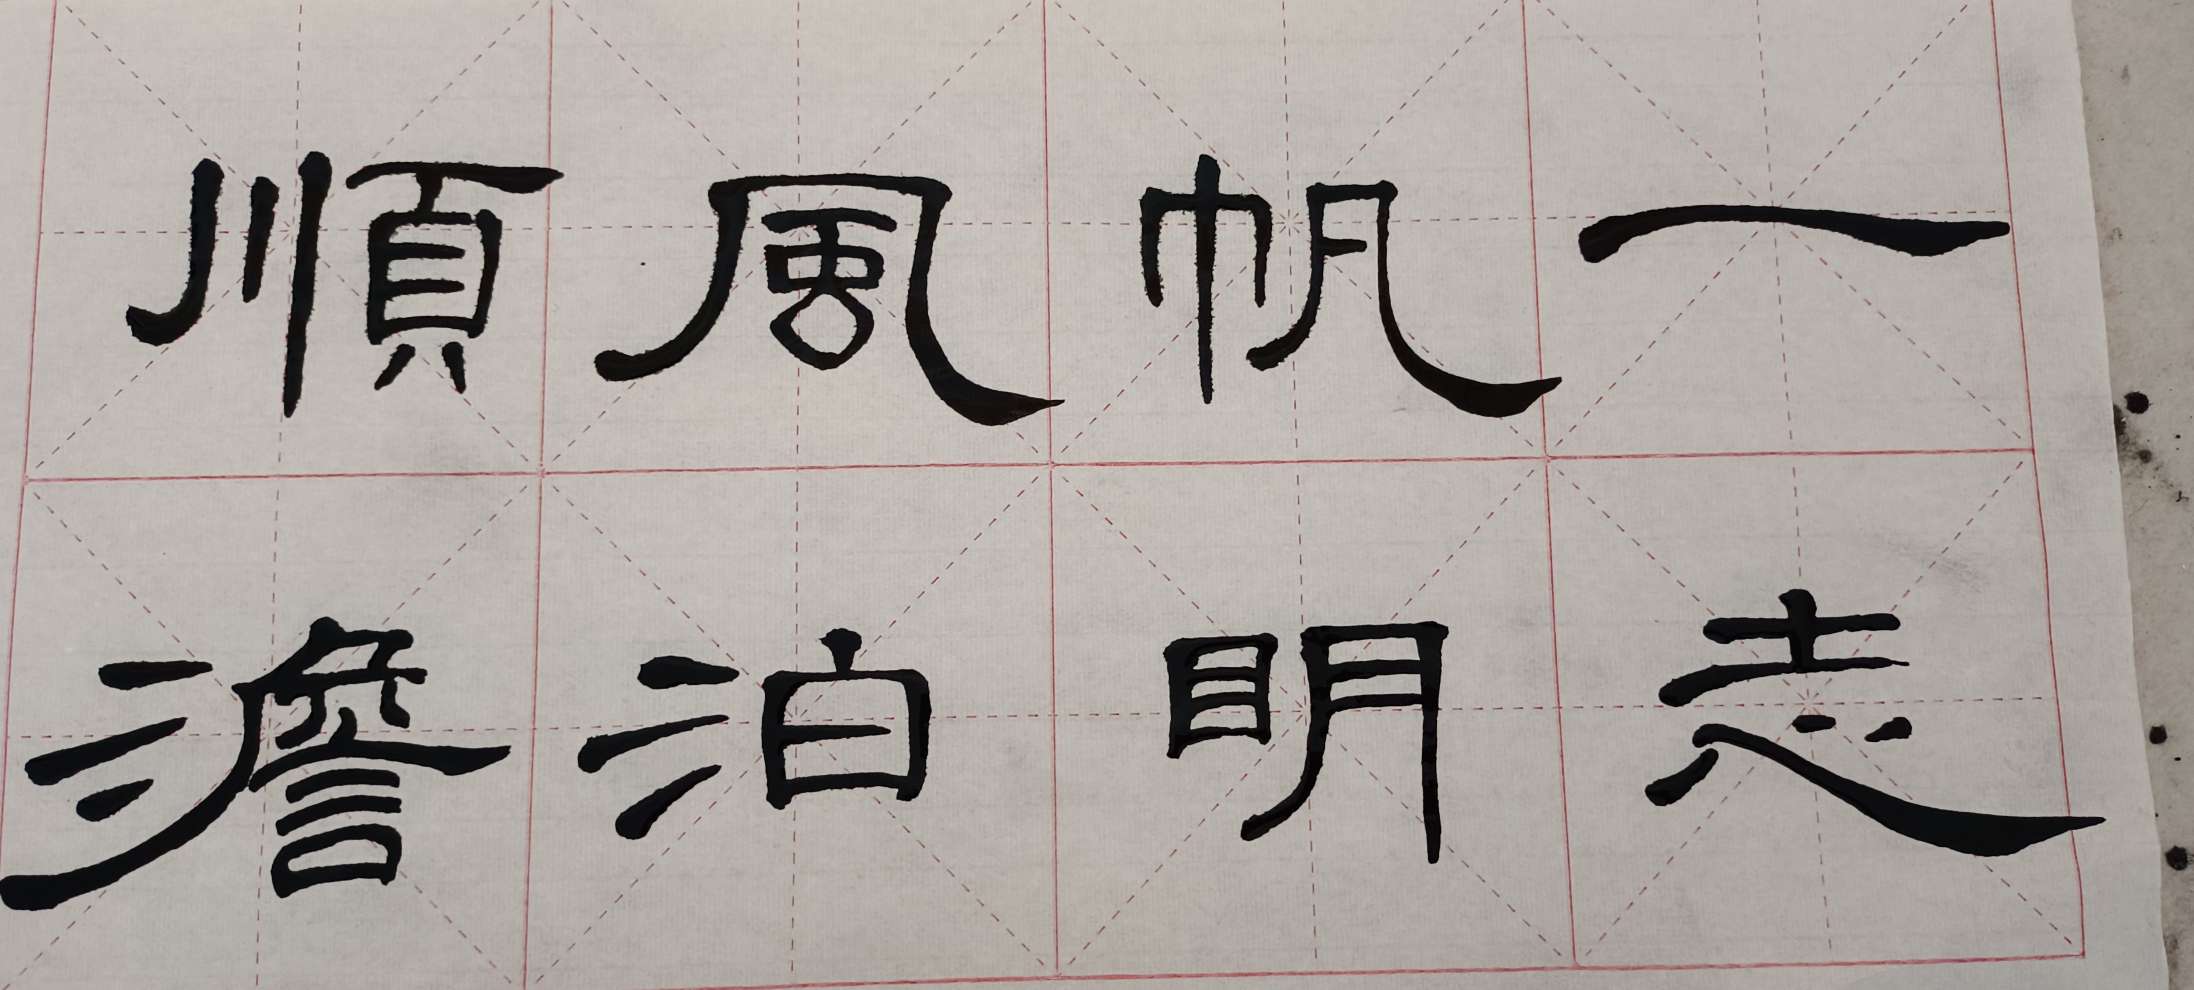 一帆風順
澹泊明志